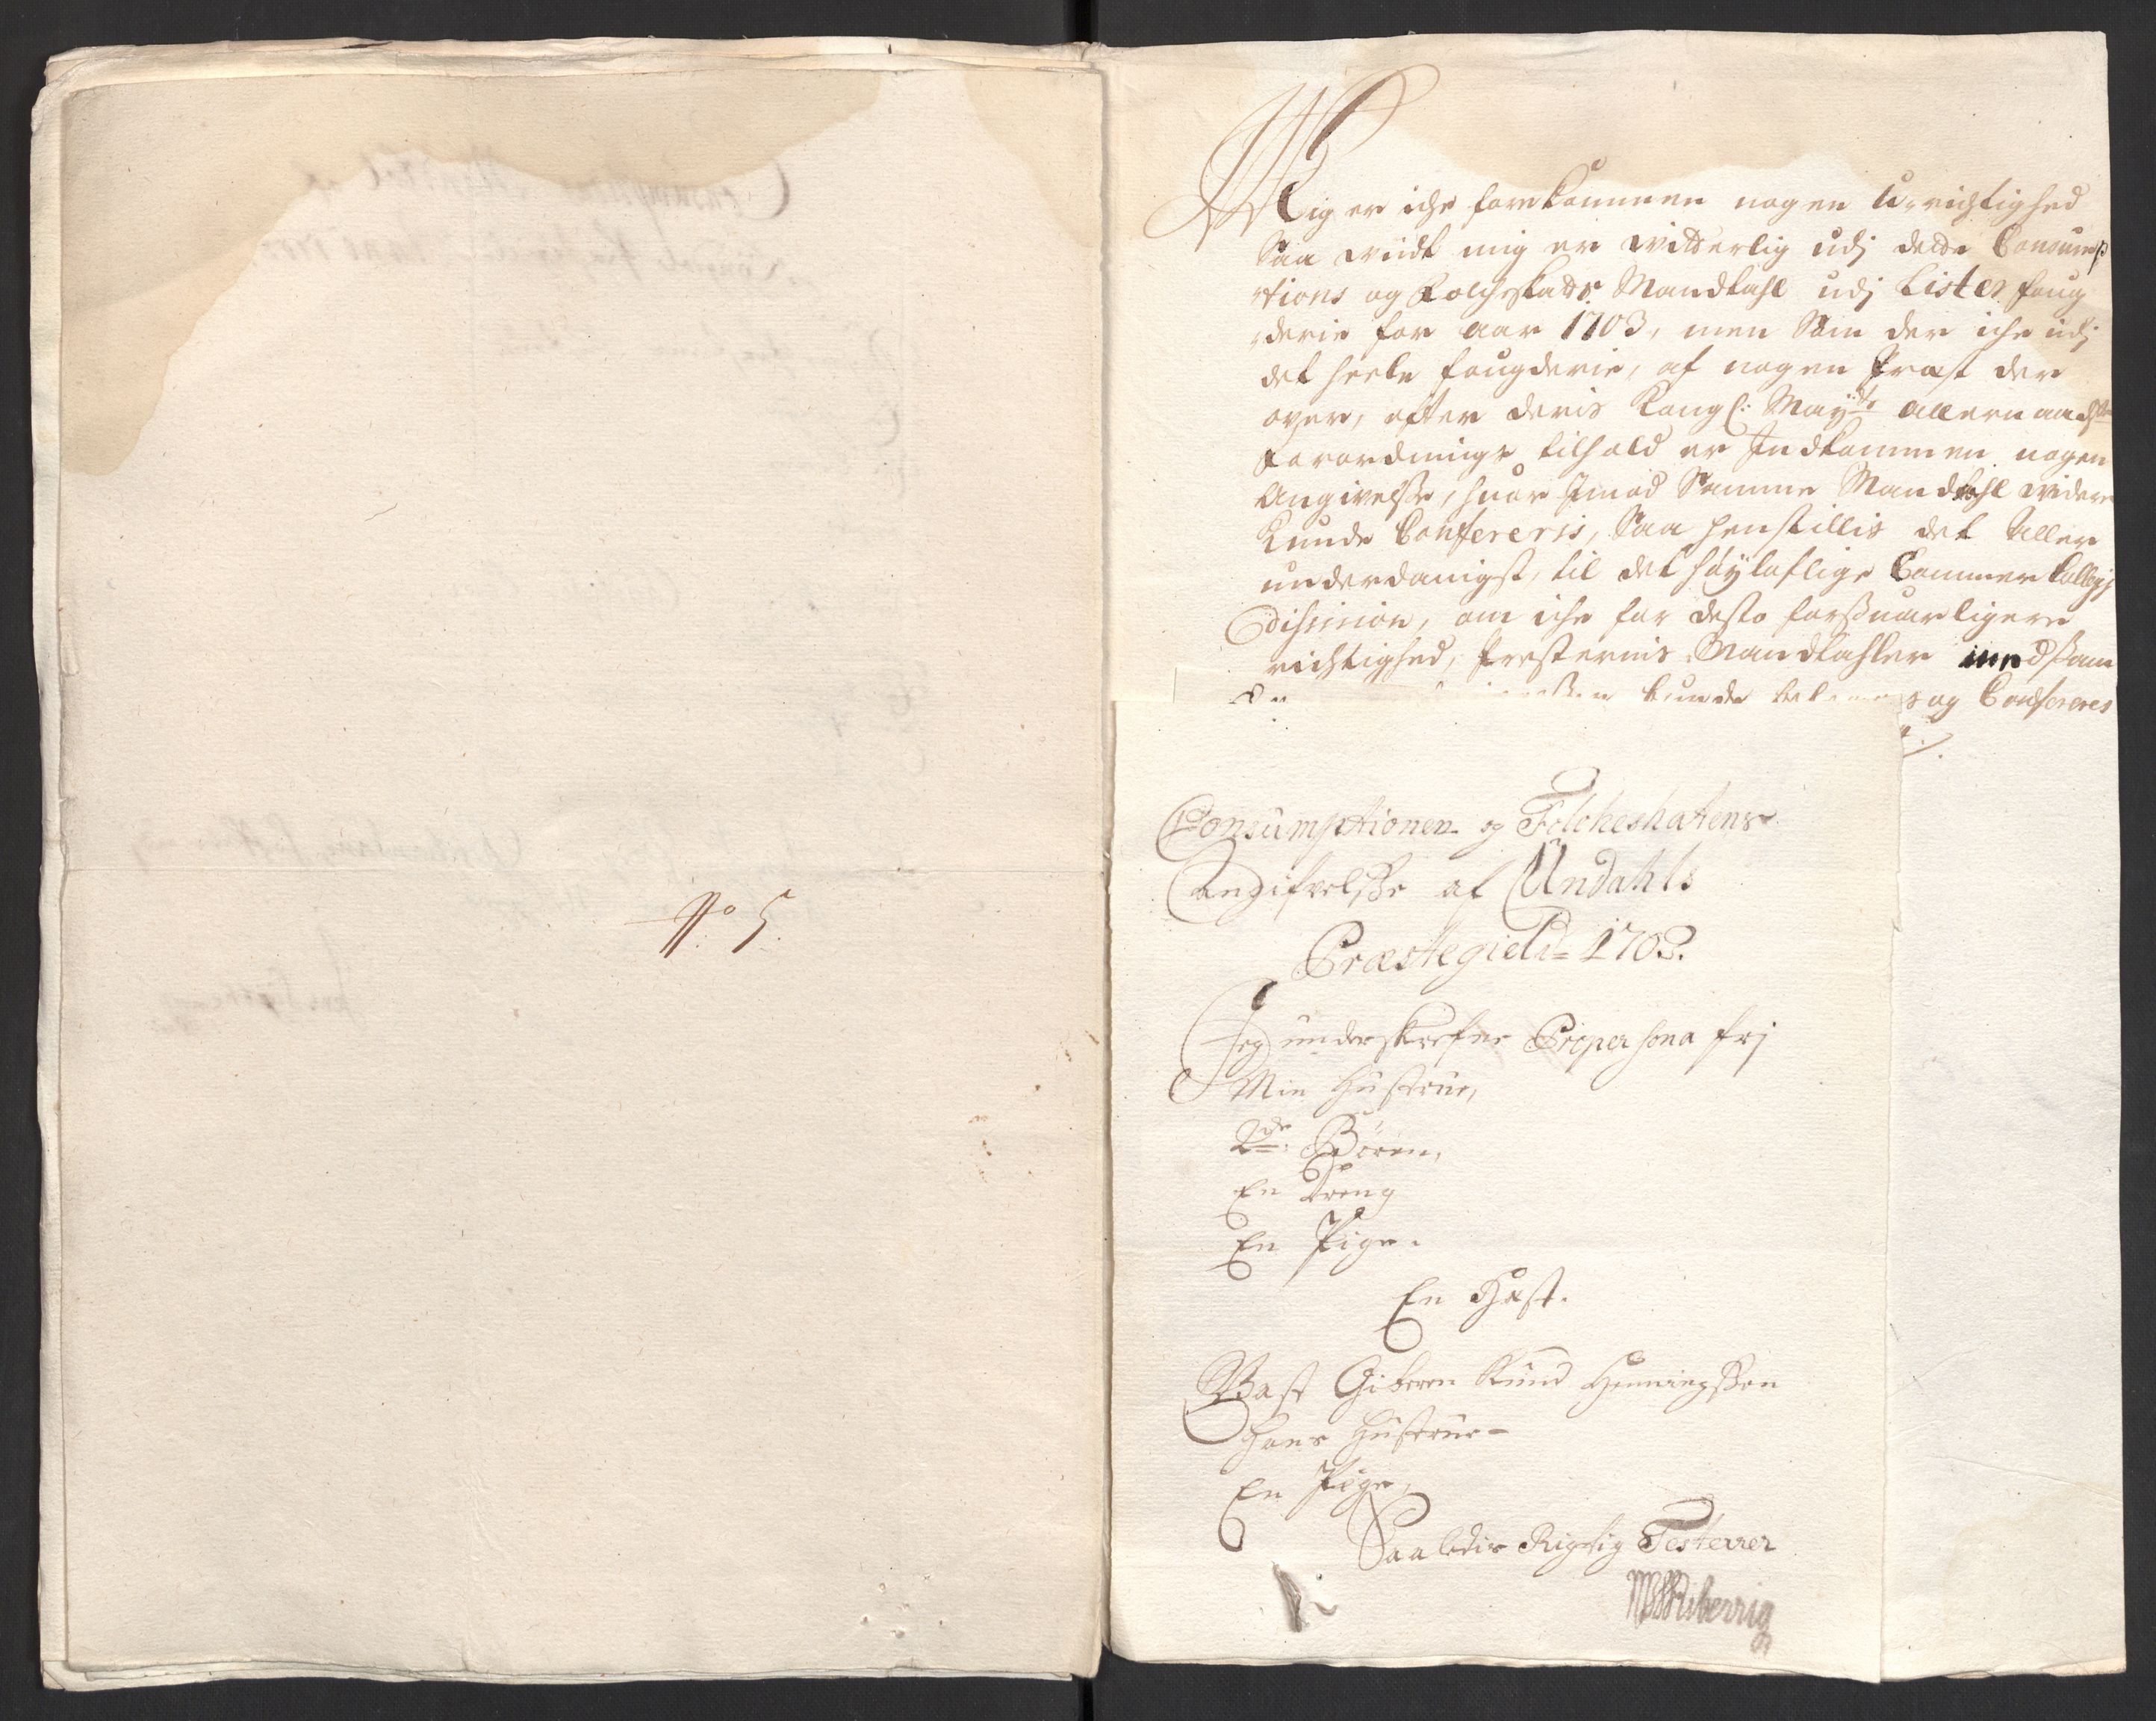 No 5.
Mig er iche forekommen nogen U-richtighed
Saa widt mig er witterlig udj dette Consump
tions og Folcheskatts Mandtahl udj Lister foug
derie for aar 1703, men Som der iche udj
det heele fougderie, af nogen Præst der
over, efter deris Kongl: Mayts allernaadste
Forordnings tilhold er Indkommen nogen
Angivelsse, huor Imod Samme Mandtahl widere
Kunde Confereris, Saa henstillis det Aller
underdanigst, til det høyloflige Cammer Collegij
Dissision, om iche for desto forsuarligere
richtighed, Presternis Mandtahler
kunde og Confereres
Consumptionen og Folcheskatens
Angifvelsse af Undahls
Præstegield 1703.
Jeg underskrefne Propersona frj
Min Hustrue,
2de Børen,
En Dreng
En Pige.
En Hæst.
Gi beren Knud Henningssen
Hans Hustrue
En Pige,
Saaledis Rigtig Testerer